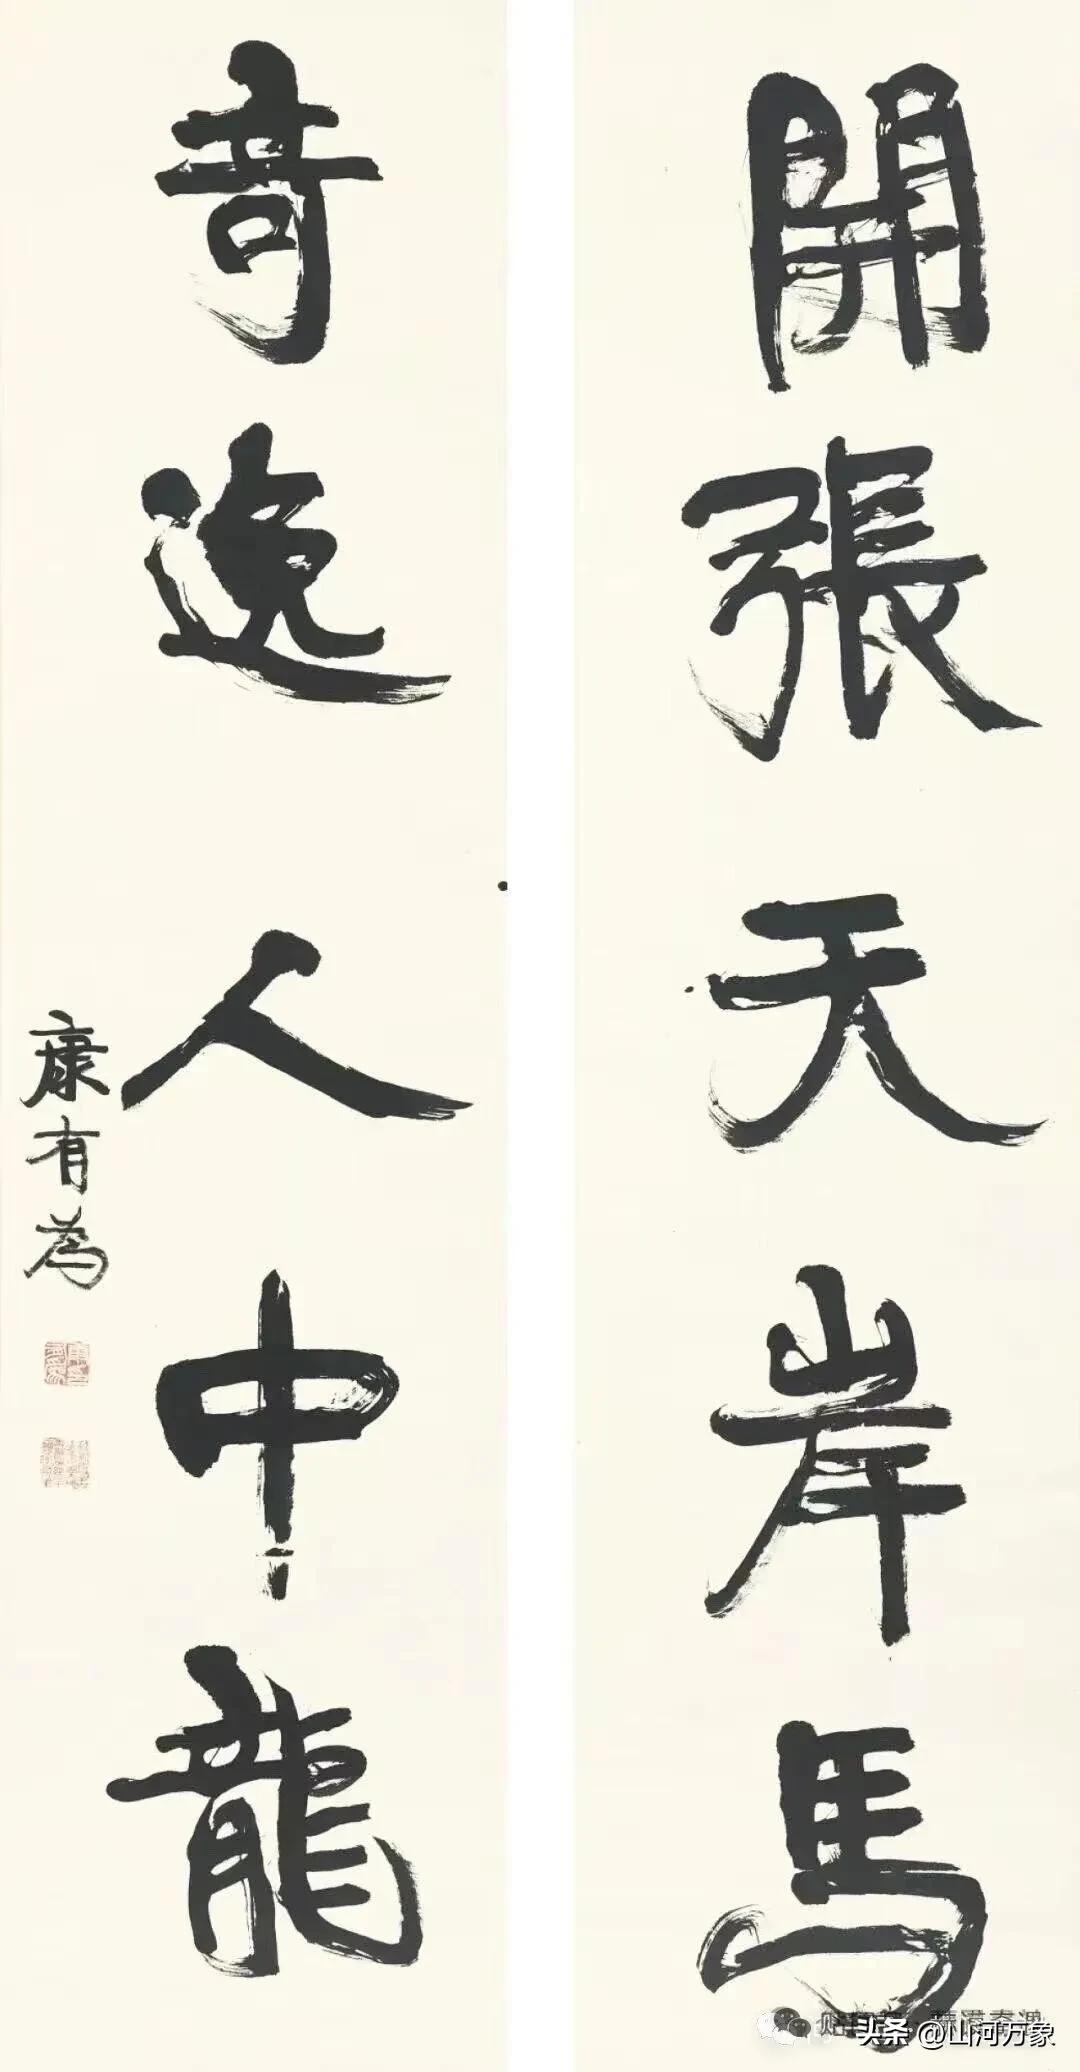 開張天岸馬
奇逸人中龍
康有為
头条 @山河万象